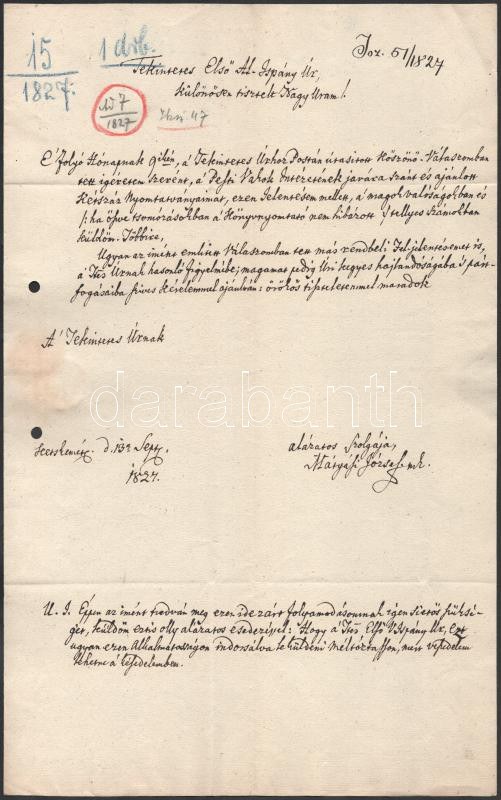 15
1827.
1 drb.
Joz. 51/1827
Tekintetes Első Al-Ispány Úr,
különösen tisztelt Nagy Uram!
No 7
1827
47
E' folyó Hónapnak 9ikén, a' Tekintetes Úrhoz Postán utasított Köszönő-Válaszomban
tett igéretem szerént, a' Pesti Vakok Intézetének javára szánt és ajánlott
Kétszáz Nyomtatványaimat, ezen Jelentésem mellett, a' magok valóságokban és
(:ha öszve tsomózásokban a' Könyvnyomtató nem hibázott:) tellyes számokban
küldöm. Többire,
Ugyan az imént említett Válaszomban tett más rendbeli Feljelentésemet is,
a' Ttes Úrnak hasonló figyelmébe; magamat pedig Úri kegyes hajlandóságába 's párt-
fogásaiba szíves Kérelemmel ajánlván: örökös tisztelettel maradok
A' Tekintetes Úrnak
darabanth
Ketskemét, d. 13a Sept.
1827.
alázatos szolgája,
Mátyási József mk.
U. I. Éppen az imént tudván meg ezen ide zárt folyamodásomnak igen sietős szüksé-
gét, küldöm ezt is olly alázatos esedezéssel: Hogy a' Ttes Első V.Ispány Úr, ezt
ugyan ezen Alkalmatosságon indorsálva le küldeni méltóztasson, mert veszedelem
lehetne a' késedelemben.